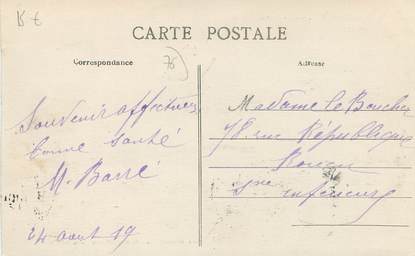 15 €
CARTE POSTALE
Correspondance
76
Adresse
Souvenir affectueux
bonne santé
M. Barré
24 août 19
Madame le Boucher
78 rue République
Rouen
Sne inférieure